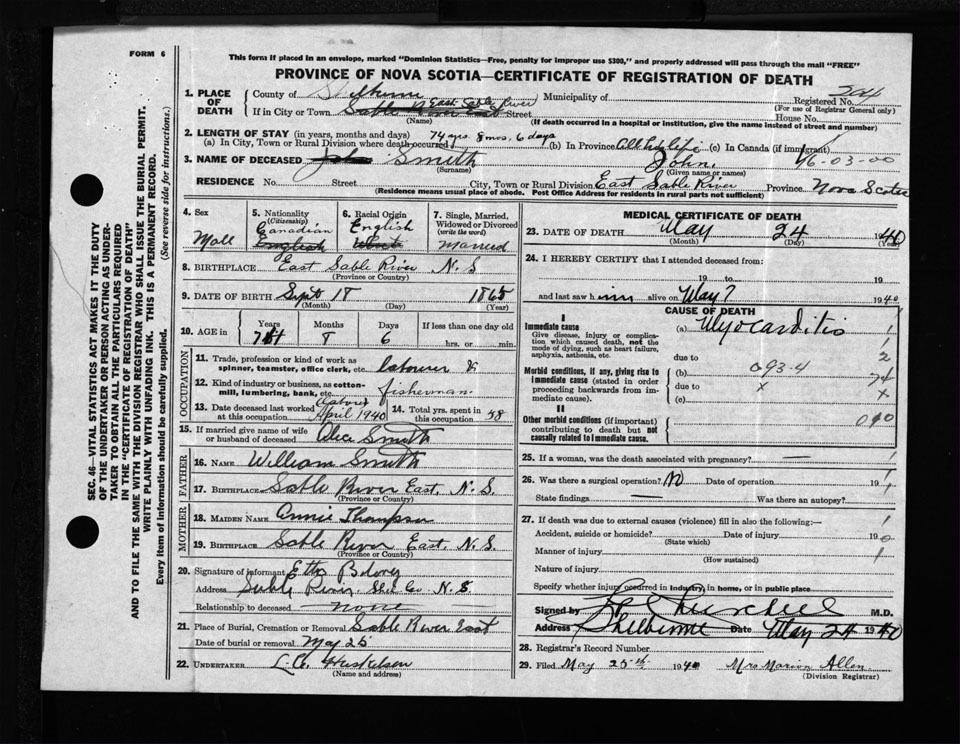 FORM 6
This form if placed in an envelope, marked "Dominion Statistics—Free, penalty for improper use $300," and properly addressed will pass through the mail "FREE"
PROVINCE OF NOVA SCOTIA—CERTIFICATE OF REGISTRATION OF DEATH
SEC. 46—VITAL STATISTICS ACT MAKES IT THE DUTY
OF THE UNDERTAKER OR PERSON ACTING AS UNDER-
TAKER TO OBTAIN ALL THE PARTICULARS REQUIRED
IN THE "CERTIFICATE OF REGISTRATION OF DEATH"
AND TO FILE THE SAME WITH THE DIVISION REGISTRAR WHO SHALL ISSUE THE BURIAL PERMIT.
WRITE PLAINLY WITH UNFADING INK. THIS IS A PERMANENT RECORD.
Every item of Information should be carefully supplied. (See reverse side for instructions.)
1. PLACE OF DEATH
County of Shelburne Municipality of
Registered No.
(For use of Registrar General only)
East Sable River
If in City or Town Sable River East Street House No.
(Name) (If death occurred in a hospital or institution, give the name instead of street and number)
2. LENGTH OF STAY (in years, months and days)
(a) In City, Town or Rural Division where death occurred 74 yrs. 8 mos. 6 days (b) In Province All his life (c) In Canada (if immigrant)
3. NAME OF DECEASED John Smith John. 16-03-00
(Surname) (Given name or names)
RESIDENCE No. Street City, Town or Rural Division East Sable River Province Nova Scotia
(Residence means usual place of abode. Post Office Address for Residents in rural parts not sufficient)
4. Sex Male
5. Nationality (Citizenship) Canadian English
6. Racial Origin English
7. Single, Married, Widowed or Divorced (write the word) Married
8. BIRTHPLACE East Sable River N.S
(Province or Country)
9. DATE OF BIRTH Sept 18 1865
(Month) (Day) (Year)
10. AGE in Years 74 Months 8 Days 6 If less than one day old hrs. or min.
OCCUPATION
11. Trade, profession or kind of work as spinner, teamster, office clerk, etc. labourer &
12. Kind of industry or business, as cotton-mill, lumbering, bank, etc. fisherman
13. Date deceased last worked at this occupation April 1940 14. Total yrs. spent in this occupation 58
15. If married give name of wife or husband of deceased Alice Smith
FATHER
16. NAME William Smith
17. BIRTHPLACE Sable River East, N.S.
(Province or Country)
MOTHER
18. MAIDEN NAME Annie Thompson
19. BIRTHPLACE Sable River East, N.S.
(Province or Country)
20. Signature of informant Etta
Address Sable River, Shel Co N.S.
Relationship to deceased none
21. Place of Burial, Cremation or Removal Sable River East
Date of burial or removal May 25
22. UNDERTAKER L.C.
(Name and address)
MEDICAL CERTIFICATE OF DEATH
23. DATE OF DEATH May 24 1940
(Month) (Day) (Year)
24. I HEREBY CERTIFY that I attended deceased from:
19 to 19
and last saw him alive on May 7 1940
CAUSE OF DEATH
I
Immediate cause (a) Myocarditis 1
Give disease, injury or complication which caused death, not the mode of dying, such as heart failure, asphyxia, asthenia, etc.
due to 2
Morbid conditions, if any, giving rise to immediate cause (stated in order proceeding backwards from immediate). (b) 093-4 74
due to x
(c) x
II
Other morbid conditions (if important) contributing to death but not causally related to Immediate cause. 090
25. If a woman, was the death associated with pregnancy? —
26. Was there a surgical operation? No Date of operation 19
State findings — Was there an autopsy?
27. If death was due to external causes (violence) fill in also the following:—
Accident, suicide or homicide? Date of injury 19
(State which)
Manner of injury
(How sustained)
Nature of injury
Specify whether injury occurred in industry, in home, or in public place
Signed by M.D.
Address Shelburne Date May 24 1940
28. Registrar's Record Number
29. Filed May 25th 1940 Mrs Marion Allen
(Division Registrar)